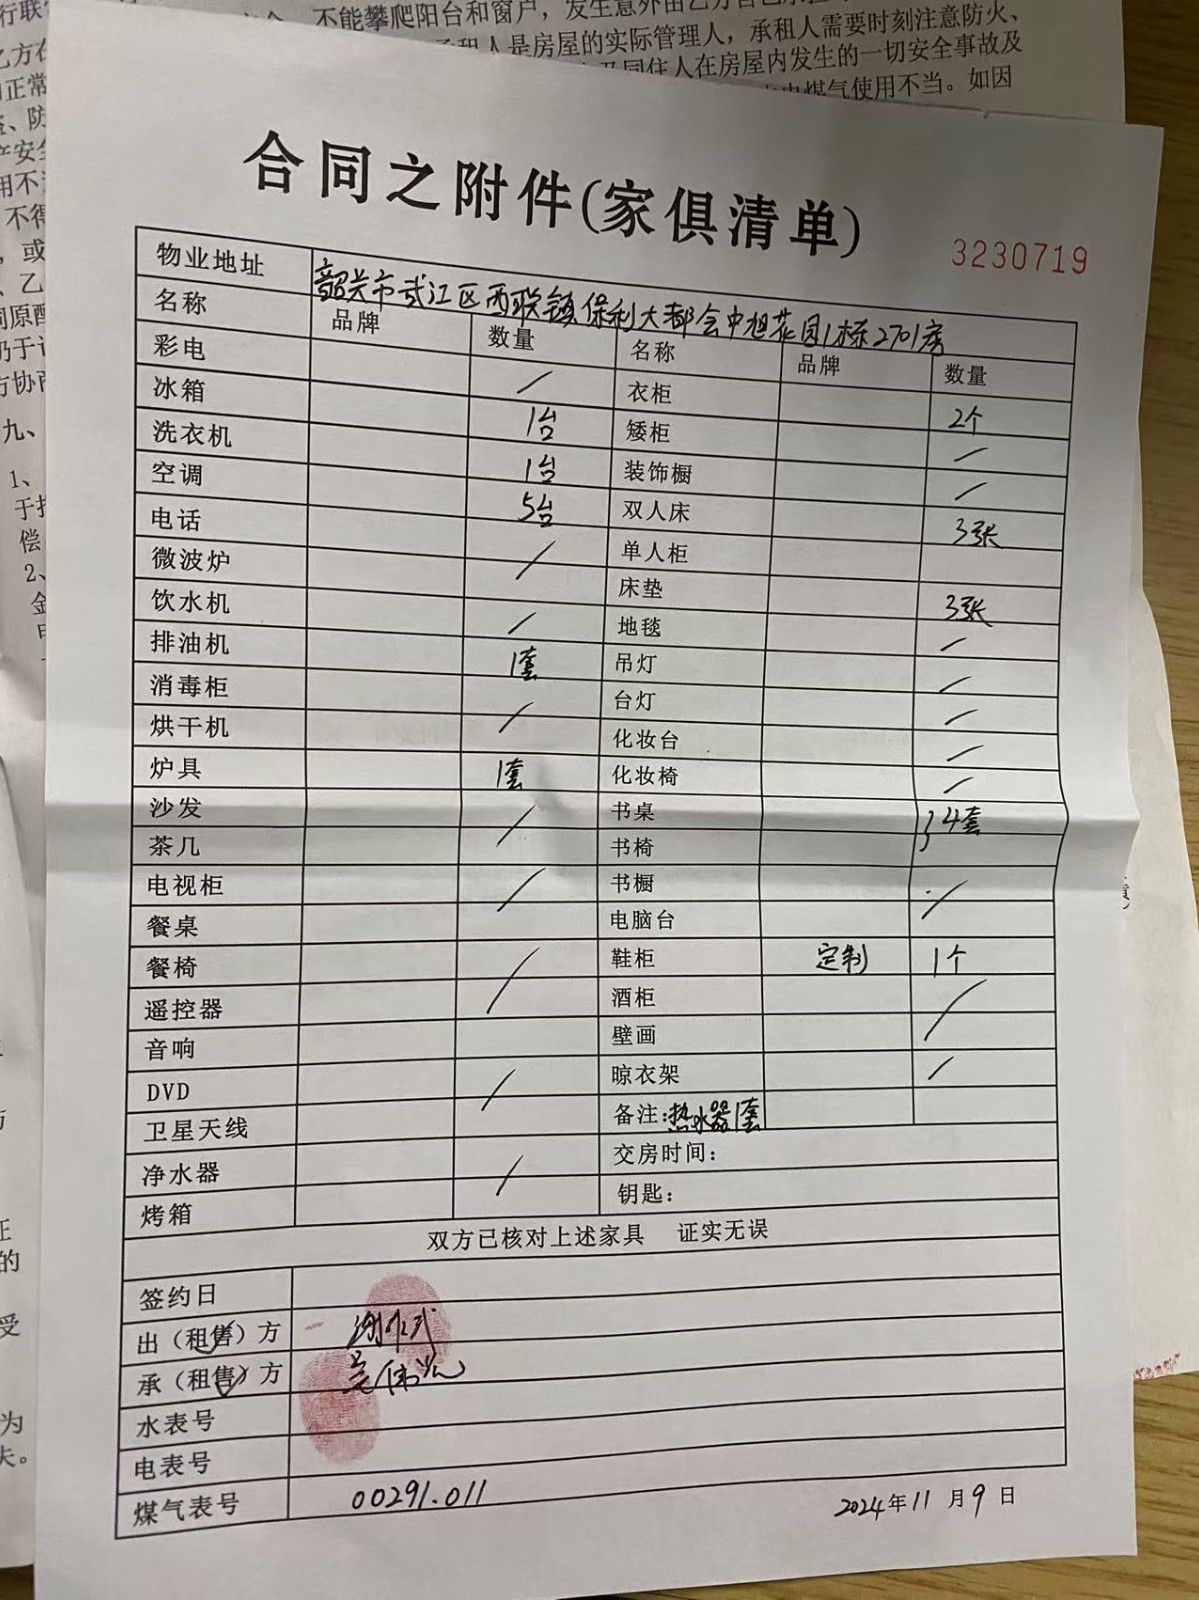 不能攀爬阳台和窗户，发生意外由乙方自己承担
承租人是房屋的实际管理人，承租人需要时刻注意防火、
同住人在房屋内发生的一切安全事故及
煤气使用不当。如因
合同之附件(家俱清单)
3230719
物业地址 韶关市武江区西联镇保利大都会中旭花园1栋2701房
名称 品牌 数量 名称 品牌 数量
彩电 / 衣柜 2个
冰箱 1台 矮柜 /
洗衣机 1台 装饰橱 /
空调 5台 双人床 3张
电话 / 单人柜
微波炉 床垫 3张
饮水机 / 地毯 /
排油机 1套 吊灯 /
消毒柜 / 台灯 /
烘干机 化妆台 /
炉具 1套 化妆椅 /
沙发 / 书桌 4套
茶几 书椅
电视柜 / 书橱 /
餐桌 电脑台
餐椅 / 鞋柜 定制 1个
遥控器 酒柜 /
音响 壁画
DVD / 晾衣架 /
卫星天线 备注:热水器1套
净水器 / 交房时间:
烤箱 钥匙:
双方已核对上述家具 证实无误
签约日
出（租售）方
承（租售）方 吴伟
水表号
电表号
煤气表号 00291.011
2024年11月9日